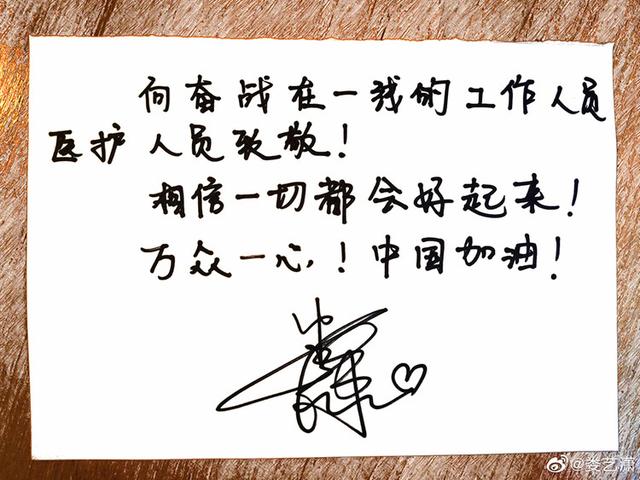 向奋战在一线的工作人员
医护人员致敬！
相信一切都会好起来！
万众一心！中国加油！
@娄艺潇